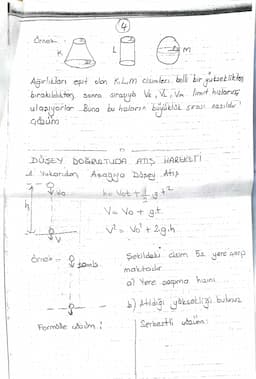 4
Örnek
K L M
Ağırlıkları eşit olan K, L, M cisimleri belli bir yükseklikten
bırakıldıktan sonra sırasıyla Vk, VL, Vm limit hızlarına
ulaşıyorlar. Buna bu hızların büyüklük sırası nasıldır?
Çözüm
DÜŞEY DOĞRULTUDA ATIŞ HAREKETİ
Yukarıdan Aşağıya Düşey Atış
Vo
h = Vot + 1/2 g.t²
h
V = Vo + g.t
V
V² = Vo² + 2.g.h
Örnek
Şekildeki cisim 5s yere
a) Yere çarpma hızını
b) Atıldığı yüksekliği bulunuz
Formülle çözüm:
çözüm: